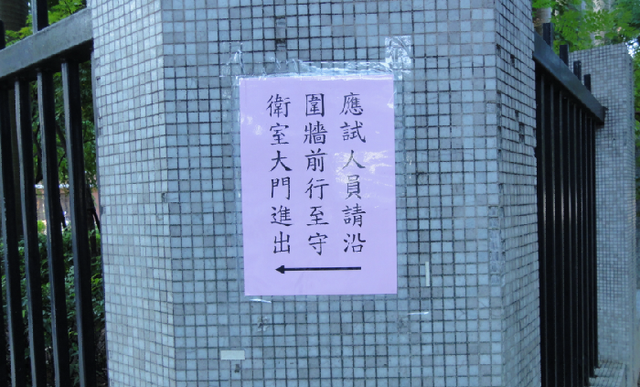 應試人員請沿
圍牆前行至守
衛室大門進出